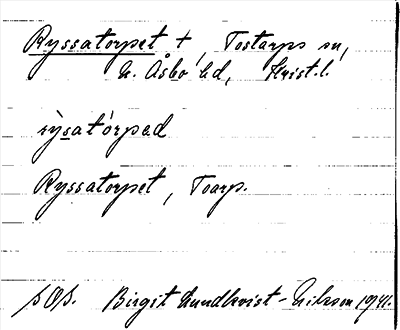 Ryssatorpet †, Tostarps sn,
N. Åsbo hd, Krist. l.
rỳsatórpəd
Ryssatorpet, Toarp.
Birgit Lundkvist-Nilsson 1941.